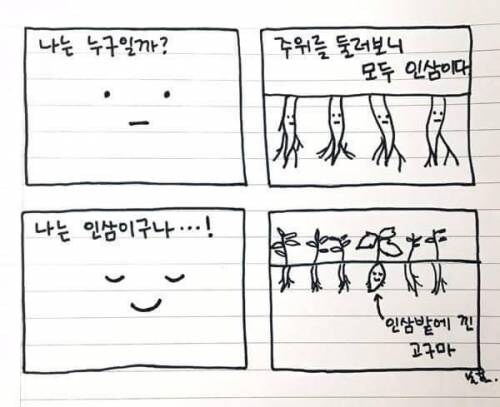 나는 누구일까?
주위를 둘러보니
모두 인삼이다
나는 인삼이구나…!
인삼밭에 낀
고구마